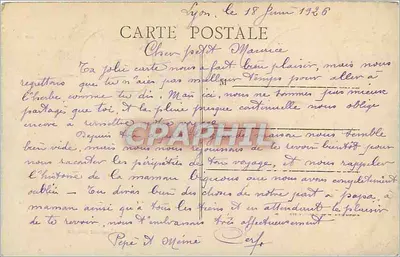 Lyon, le 18 Juin 1926
CARTE POSTALE
Cher petit Maurice
Ta jolie carte nous a fait bien plaisir, mais nous
regrettons que tu n'aies pas meilleur temps pour aller à
l'herbe, comme tu dis. Mais ici, nous ne sommes pas mieux
partagés que toi, et la pluie presque continuelle nous oblige
encore à remettre
CPAPHIL
Depuis la maison nous semble
bien vide, mais nous nous réjouissons de te revoir bientôt pour
nous raconter les péripéties de ton voyage, et nous rappeler
l'histoire de la maman que nous avons complètement
oubliée - Tu diras bien des choses de notre part à papa, à
maman ainsi qu'à tous les tiens et en attendant le plaisir
de te revoir, nous t'embrassons très affectueusement
Pépé et Mémé